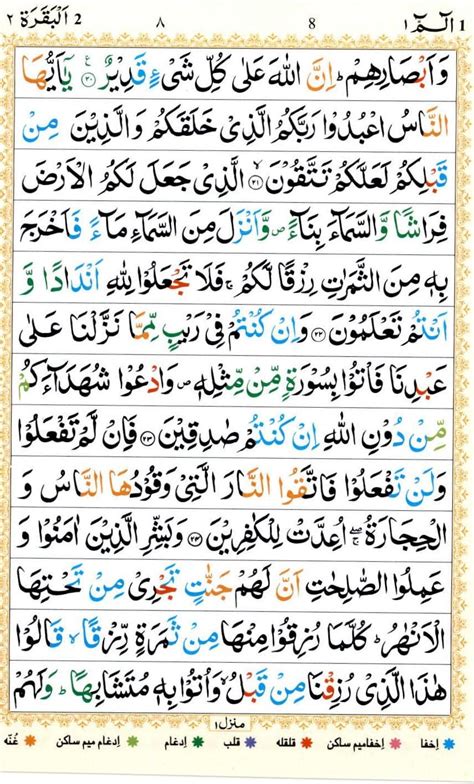 الٓمّٓ ١ 1 8 ٨ 2 اَلْبَقَرَة ٢
وَاَبْصَارِهِمْ ؕ اِنَّ اللّٰهَ عَلٰى كُلِّ شَیْءٍ قَدِیْرٌ ۠﴿۲۰﴾ یٰۤاَیُّهَا
النَّاسُ اعْبُدُوْا رَبَّكُمُ الَّذِیْ خَلَقَكُمْ وَالَّذِیْنَ مِنْ
قَبْلِكُمْ لَعَلَّكُمْ تَتَّقُوْنَ ۙ﴿۲۱﴾ الَّذِیْ جَعَلَ لَكُمُ الْاَرْضَ
فِرَاشًا وَّالسَّمَآءَ بِنَآءً ۪ وَّاَنْزَلَ مِنَ السَّمَآءِ مَآءً فَاَخْرَجَ
بِهٖ مِنَ الثَّمَرٰتِ رِزْقًا لَّكُمْ ۚ فَلَا تَجْعَلُوْا لِلّٰهِ اَنْدَادًا وَّ
اَنْتُمْ تَعْلَمُوْنَ ﴿۲۲﴾ وَاِنْ كُنْتُمْ فِیْ رَیْبٍ مِّمَّا نَزَّلْنَا عَلٰى
عَبْدِنَا فَاْتُوْا بِسُوْرَةٍ مِّنْ مِّثْلِهٖ ۪ وَادْعُوْا شُهَدَآءَكُمْ
مِّنْ دُوْنِ اللّٰهِ اِنْ كُنْتُمْ صٰدِقِیْنَ ﴿۲۳﴾ فَاِنْ لَّمْ تَفْعَلُوْا
وَلَنْ تَفْعَلُوْا فَاتَّقُوا النَّارَ الَّتِیْ وَقُوْدُهَا النَّاسُ وَ
الْحِجَارَةُ ۖۚ اُعِدَّتْ لِلْكٰفِرِیْنَ ﴿۲۴﴾ وَبَشِّرِ الَّذِیْنَ اٰمَنُوْا وَ
عَمِلُوا الصّٰلِحٰتِ اَنَّ لَهُمْ جَنّٰتٍ تَجْرِیْ مِنْ تَحْتِهَا
الْاَنْهٰرُ ؕ كُلَّمَا رُزِقُوْا مِنْهَا مِنْ ثَمَرَةٍ رِّزْقًا ۙ قَالُوْا
هٰذَا الَّذِیْ رُزِقْنَا مِنْ قَبْلُ ۙ وَاُتُوْا بِهٖ مُتَشَابِهًا ؕ وَلَهُمْ
منزل ۱
اِخفا اِخفامیم ساکن قلقله قلب اِدغام اِدغام میم ساکن غُنّه